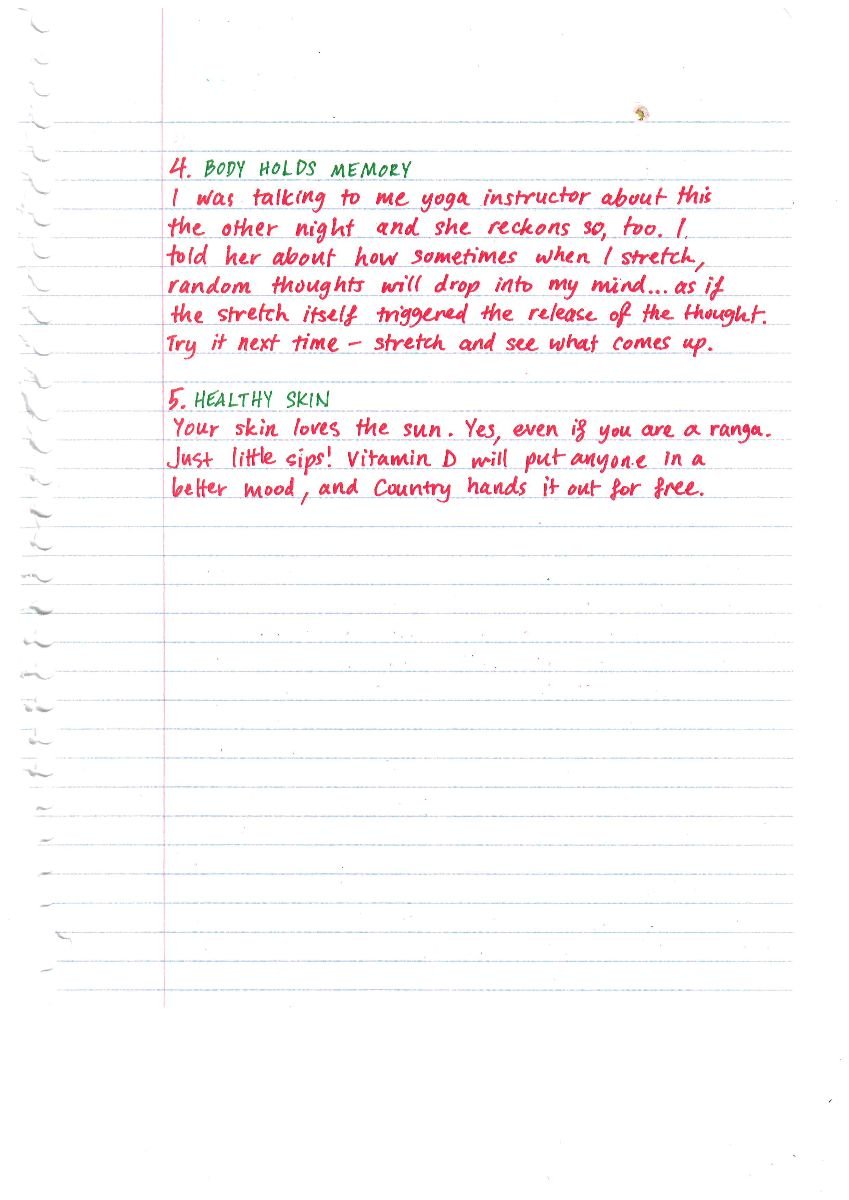 4. BODY HOLDS MEMORY
I was talking to me yoga instructor about this
the other night and she reckons so, too. I
told her about how sometimes when I stretch,
random thoughts will drop into my mind... as if
the stretch itself triggered the release of the thought.
Try it next time - stretch and see what comes up.
5. HEALTHY SKIN
Your skin loves the sun. Yes, even if you are a ranga.
Just little sips! Vitamin D will put anyone in a
better mood, and Country hands it out for free.